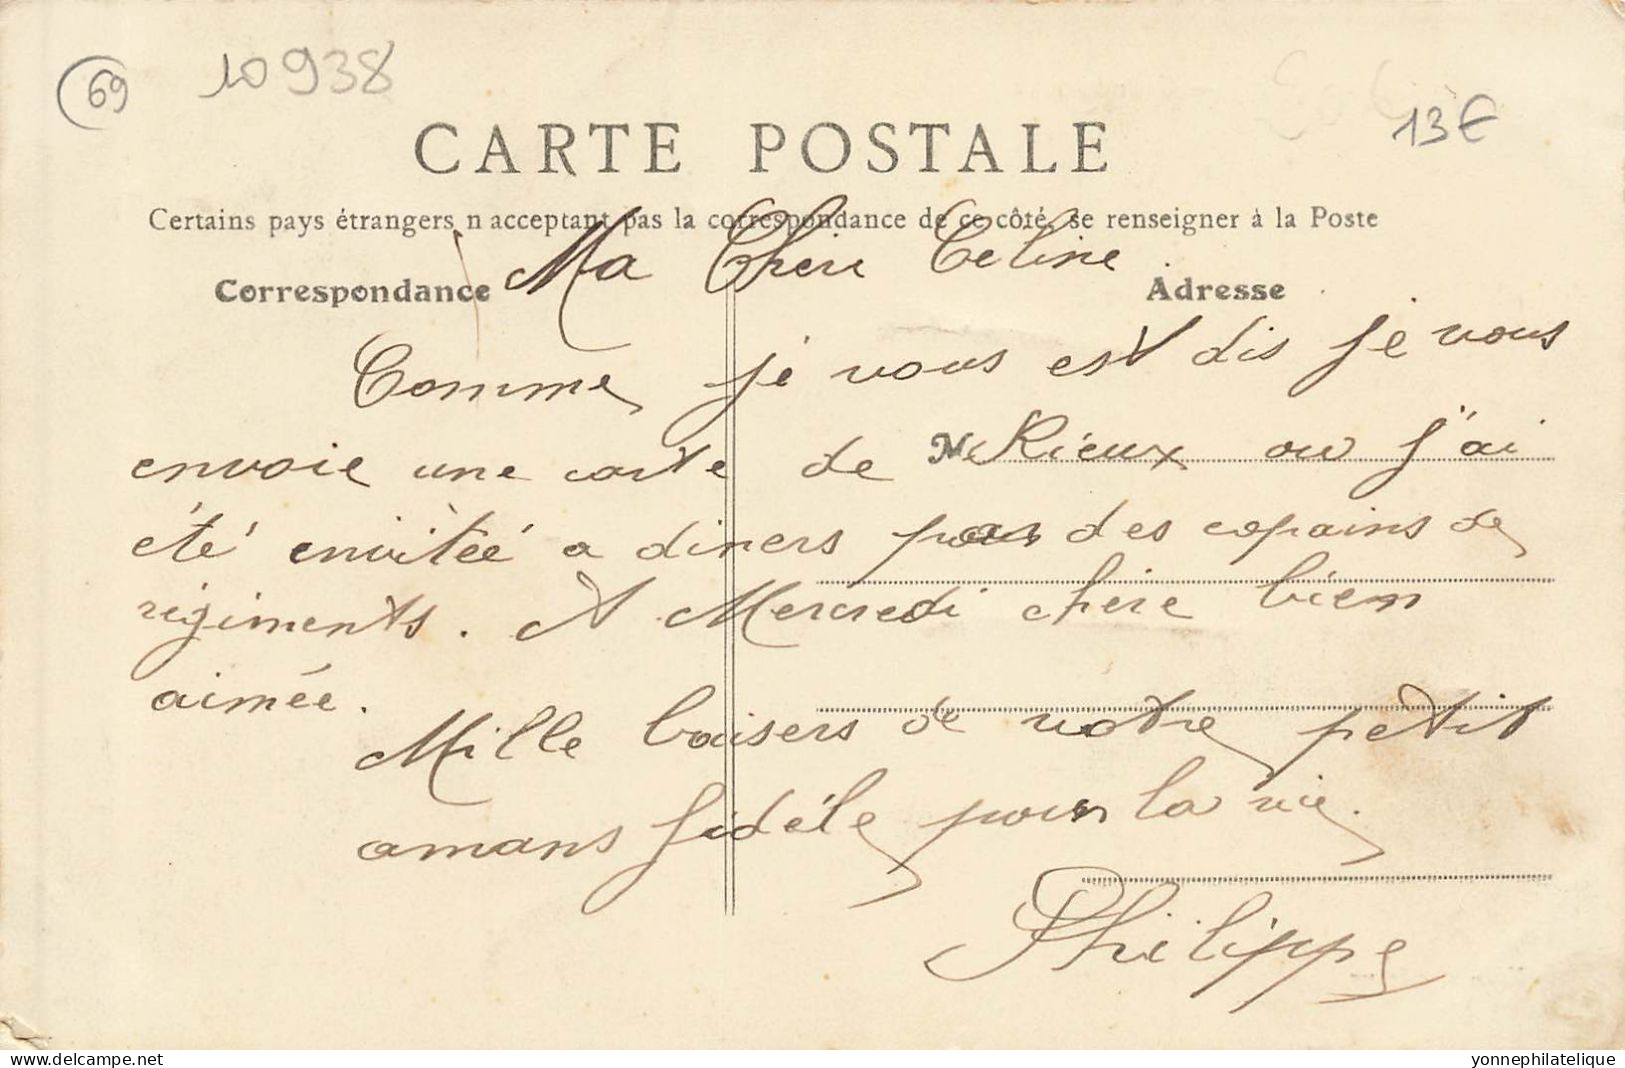 69 10938
13€
CARTE POSTALE
Certains pays étrangers n'acceptant pas la correspondance de ce côté, se renseigner à la Poste
Correspondance
Adresse
Ma Chere Celine
Comme je vous est dis je vous
envoie une carte de Rieux ou j'ai
M
été envitéé a diners par des copains de
régiments. A Mercredi chere bien
aimée.
Mille baisers de votre petit
amans fidéle pour la vie.
Philippe
www.delcampe.net
yonnephilatelique